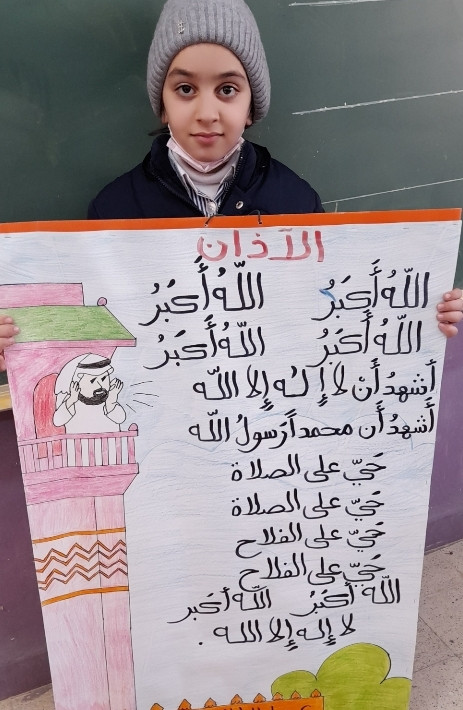 الآذان
اللّهُ أَكبَرُ اللّهُ أَكبَرُ
اللّهُ أَكبَرُ اللّهُ أَكبَرُ
أَشهدُ أَنْ لا إِله إِلا اللّه
أَشهدُ أَن محمداً رَسولُ اللّه
حَيّ على الصلاة
حَيّ على الصلاة
حَيّ على الفلاح
حَيّ على الفلاح
اللّه أَكبَرُ اللّه أَكبر
لا إله إلا الله .